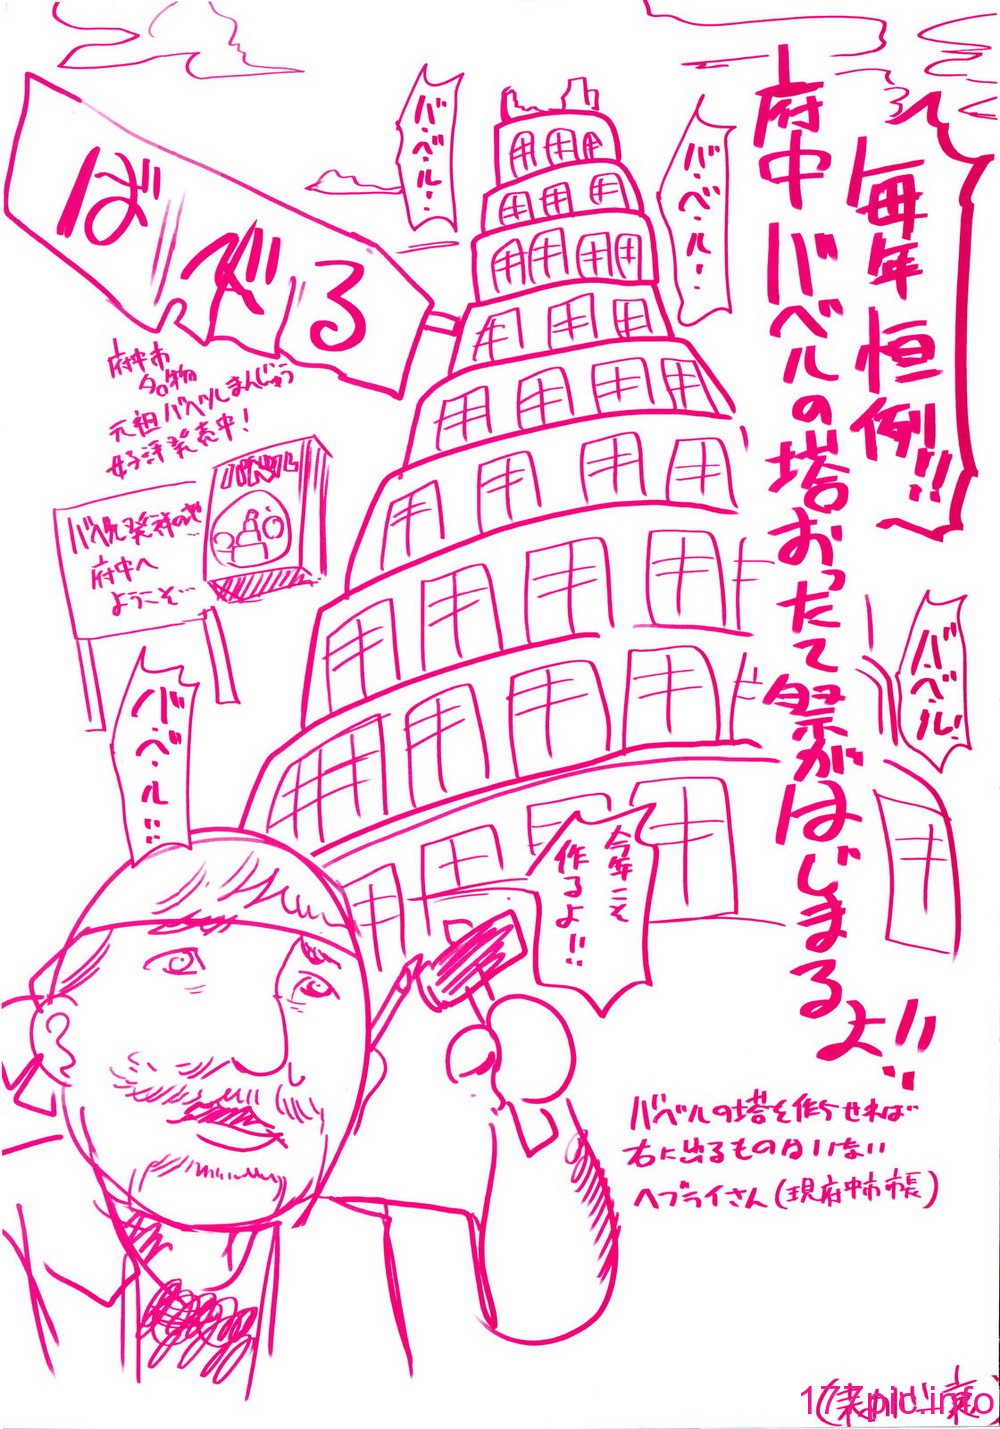 毎年恒例!!
府中バベルの塔おったて祭がはじまるよ!!
バ・ベ・ル・・
バ・ベ・ル・・
ばべる
府中市
名物
元祖バベルまんじゅう
好評発売中!
バベル
バベル発祥の地
府中へ
ようこそ…
バ・ベ・ル!
バ・ベ・ル!!
今年こそ
作るよ!!
バベルの塔を作らせれば
右に出るものはいない
ヘブライさん(現府中市市長)
177pic.info